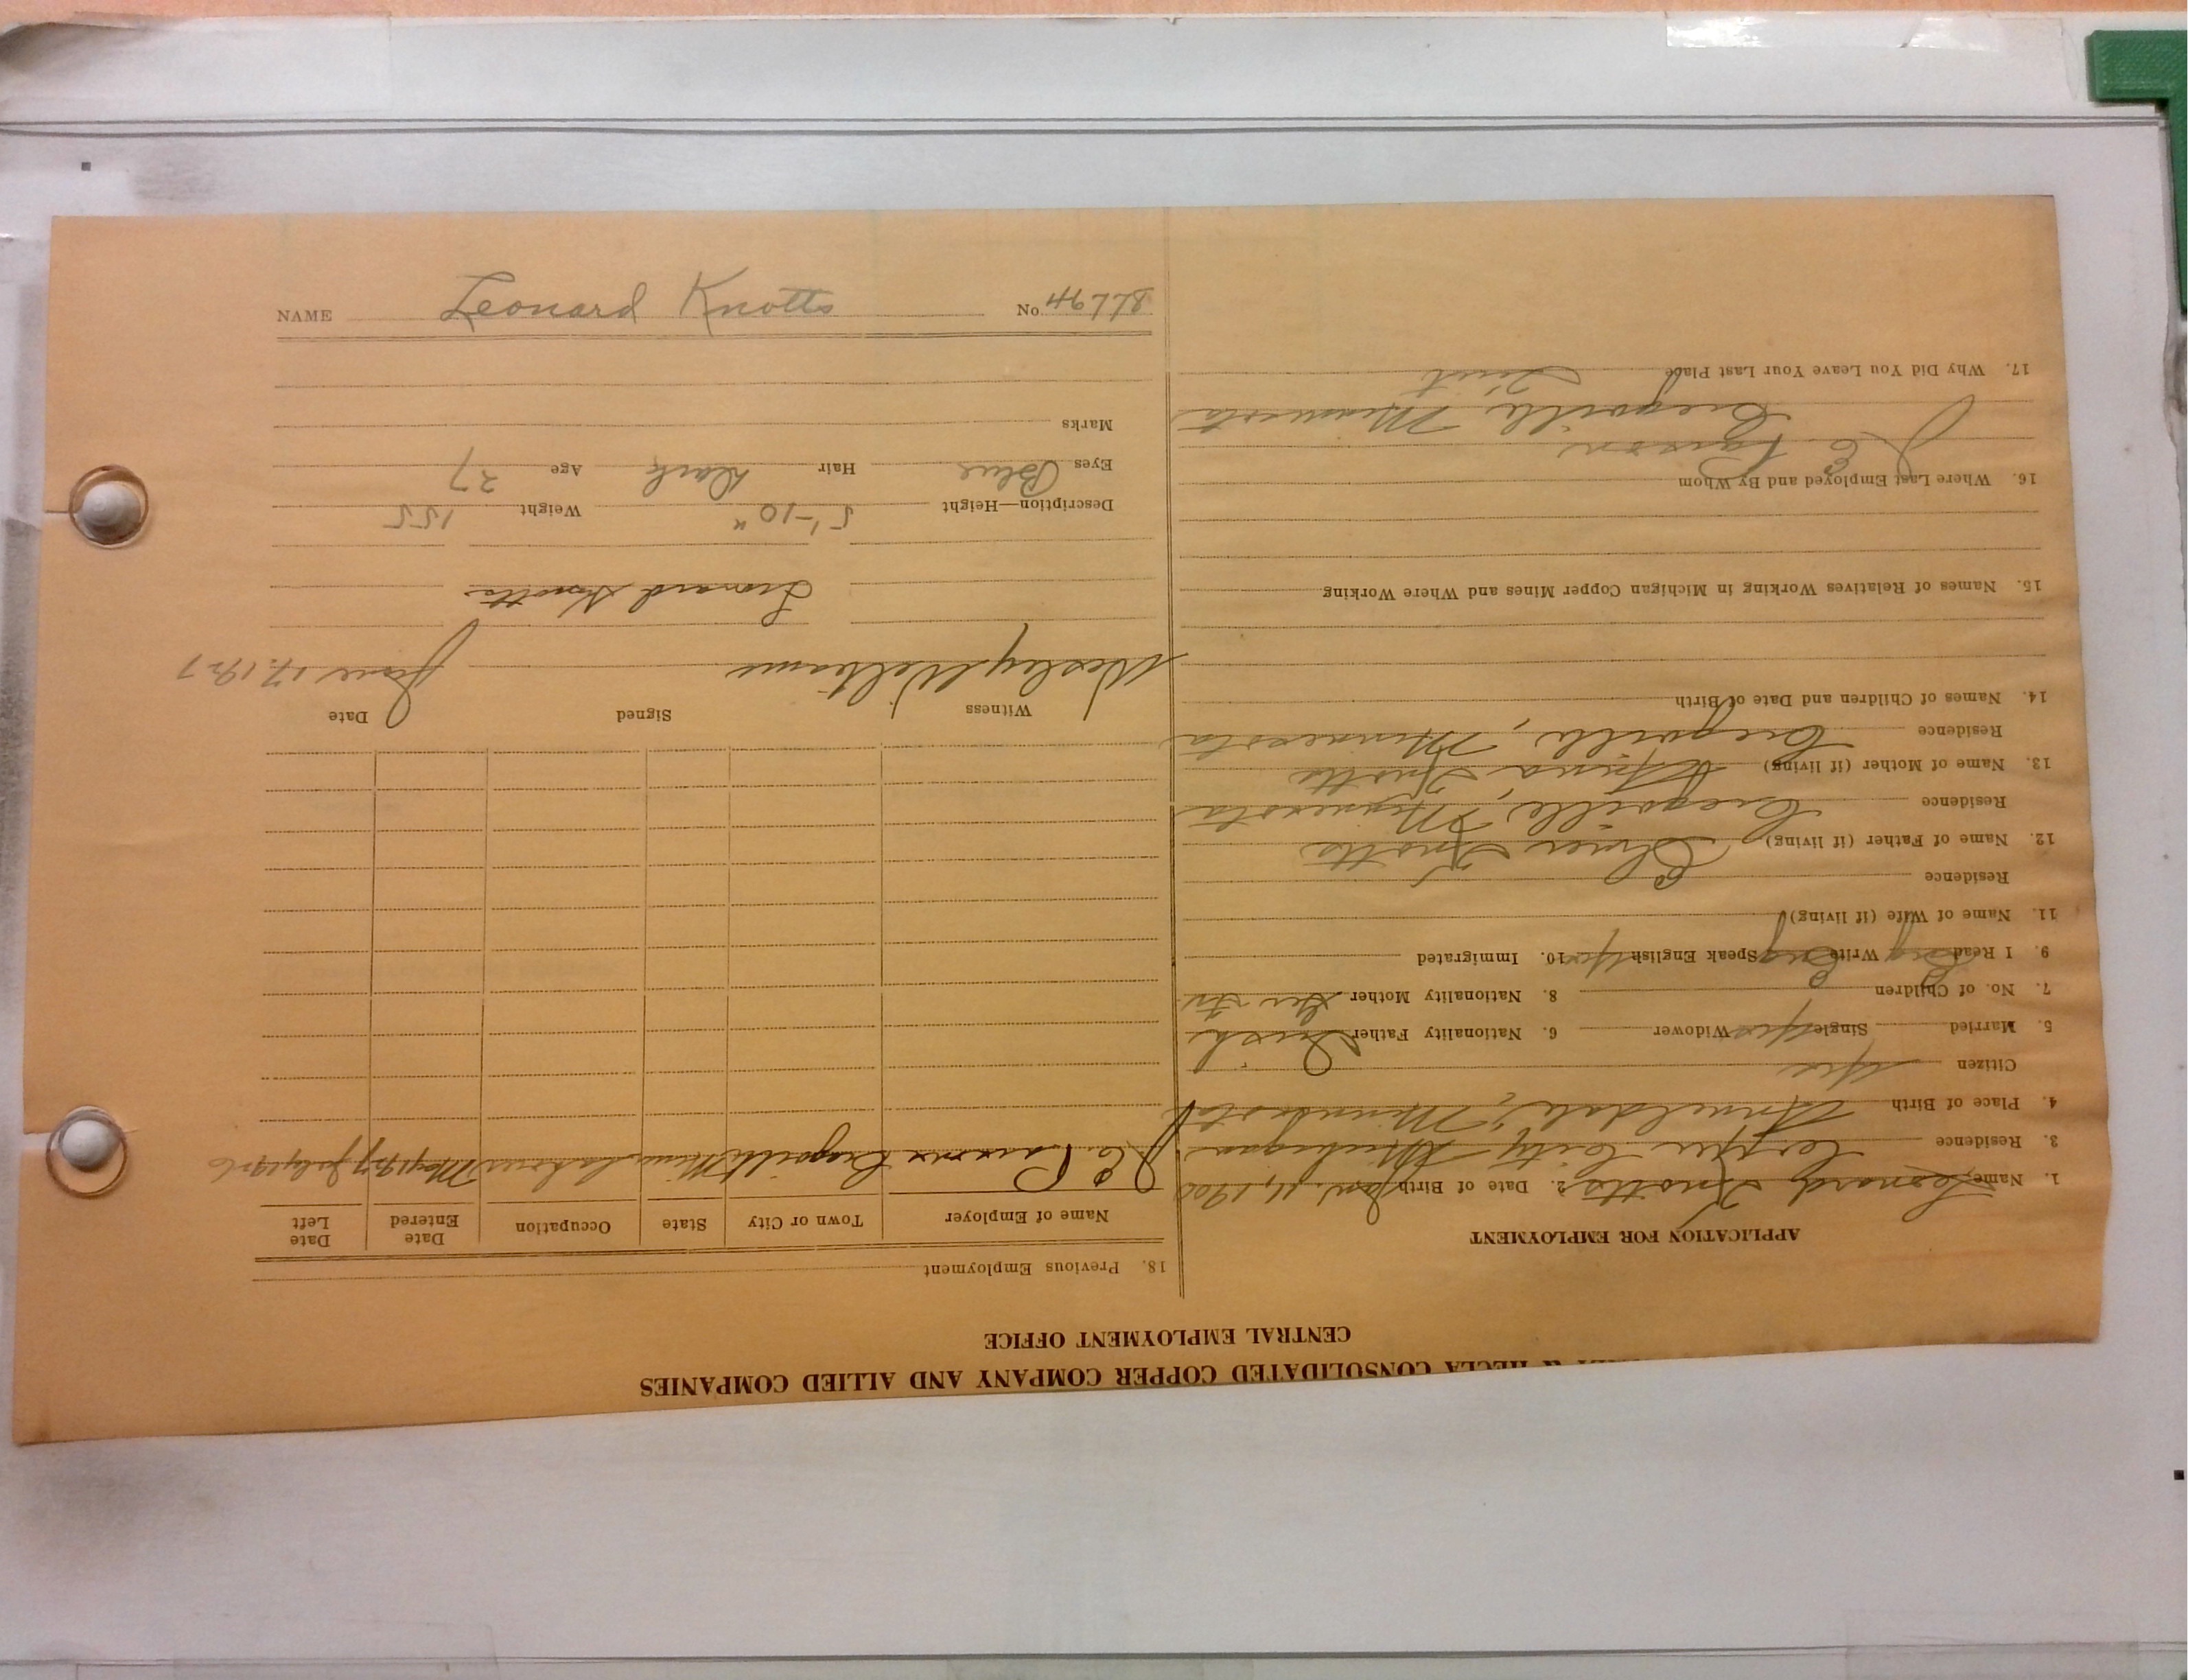 CONSOLIDATED COPPER COMPANY AND ALLIED COMPANIES
CENTRAL EMPLOYMENT OFFICE
APPLICATION FOR EMPLOYMENT
1. Name Leonard Knotts 2. Date of Birth Jan. 11, 1900
3. Residence Copper City Michigan
4. Place of Birth Annandale, Minnesota
Citizen Yes
5. Married Single Yes Widower 6. Nationality Father Irish
7. No. of Children 8. Nationality Mother
9. I Read Eng Write Eng Speak English Yes 10. Immigrated
11. Name of Wife (if living)
Residence
12. Name of Father (if living) Elmer Knotts
Residence Minnesota
13. Name of Mother (if living) Anna Knotts
Residence Minnesota
14. Names of Children and Date of Birth
15. Names of Relatives Working in Michigan Copper Mines and Where Working
16. Where Last Employed and By Whom
J. E. Parson
Minnesota
17. Why Did You Leave Your Last Place Quit
18. Previous Employment
Name of Employer Town or City State Occupation Date Entered Date Left
J. E. Minn Laborer May 1927 July 1926
Witness Signed Date
Wesley June 17, 1927
Leonard Knotts
Description—Height 5'-10" Weight 155
Eyes Blue Hair Dark Age 27
Marks
NAME Leonard Knotts No.